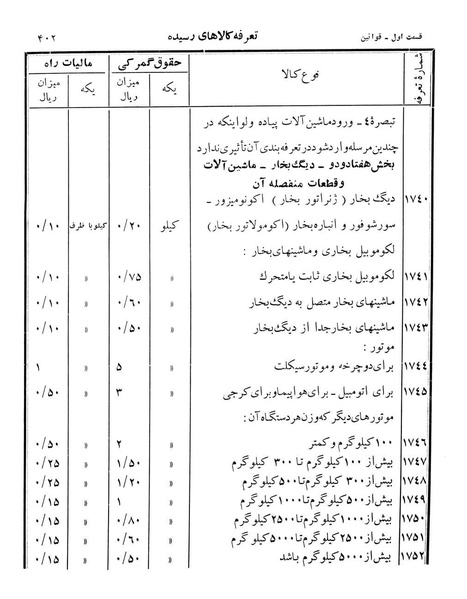 قسمت اول - قوانین
تعرفه کالاهای رسیده
۴۰۲
شمارهٔ تعرفه
نوع کالا
حقوق گمرکی
مالیات راه
یکه
میزان ریال
یکه
میزان ریال
تبصرهٔ ٤ - ورود ماشین آلات پیاده ولو اینکه در
چندین مرسله وارد شود در تعرفه بندی آن تأثیری ندارد
بخش هفتاد و دو - دیگ بخار - ماشین آلات
و قطعات منفصله آن
۱۷٤۰ دیگ بخار ( ژنراتور بخار ) اکونومیزور -
سورشوفور و انباره بخار (اکومولاتور بخار) کیلو ۰/۲۰ کیلو با ظرف ۰/۱۰
لکوموبیل بخاری و ماشینهای بخار :
۱۷٤۱ لکوموبیل بخاری ثابت یا متحرک » ۰/۷۵ » ۰/۱۰
۱۷٤۲ ماشینهای بخار متصل به دیگ بخار » ۰/۶۰ » ۰/۱۰
۱۷٤۳ ماشینهای بخار جدا از دیگ بخار » ۰/۵۰ » ۰/۱۰
موتور :
۱۷٤٤ برای دوچرخه و موتورسیکلت » ۵ » ۱
۱۷٤۵ برای اتومبیل - برای هواپیما و برای کرجی » ۳ » ۰/۵۰
موتورهای دیگر که وزن هر دستگاه آن :
۱۷٤۶ ۱۰۰ کیلوگرم و کمتر » ۲ » ۰/۵۰
۱۷٤۷ بیش از ۱۰۰ کیلوگرم تا ۳۰۰ کیلوگرم » ۱/۵۰ » ۰/۲۵
۱۷٤۸ بیش از ۳۰۰ کیلوگرم تا ۵۰۰ کیلوگرم » ۱/۲۰ » ۰/۲۵
۱۷٤۹ بیش از ۵۰۰ کیلوگرم تا ۱۰۰۰ کیلوگرم » ۱ » ۰/۱۵
۱۷۵۰ بیش از ۱۰۰۰ کیلوگرم تا ۲۵۰۰ کیلوگرم » ۰/۸۰ » ۰/۱۵
۱۷۵۱ بیش از ۲۵۰۰ کیلوگرم تا ۵۰۰۰ کیلوگرم » ۰/۶۰ » ۰/۱۵
۱۷۵۲ بیش از ۵۰۰۰ کیلوگرم باشد » ۰/۵۰ » ۰/۱۵